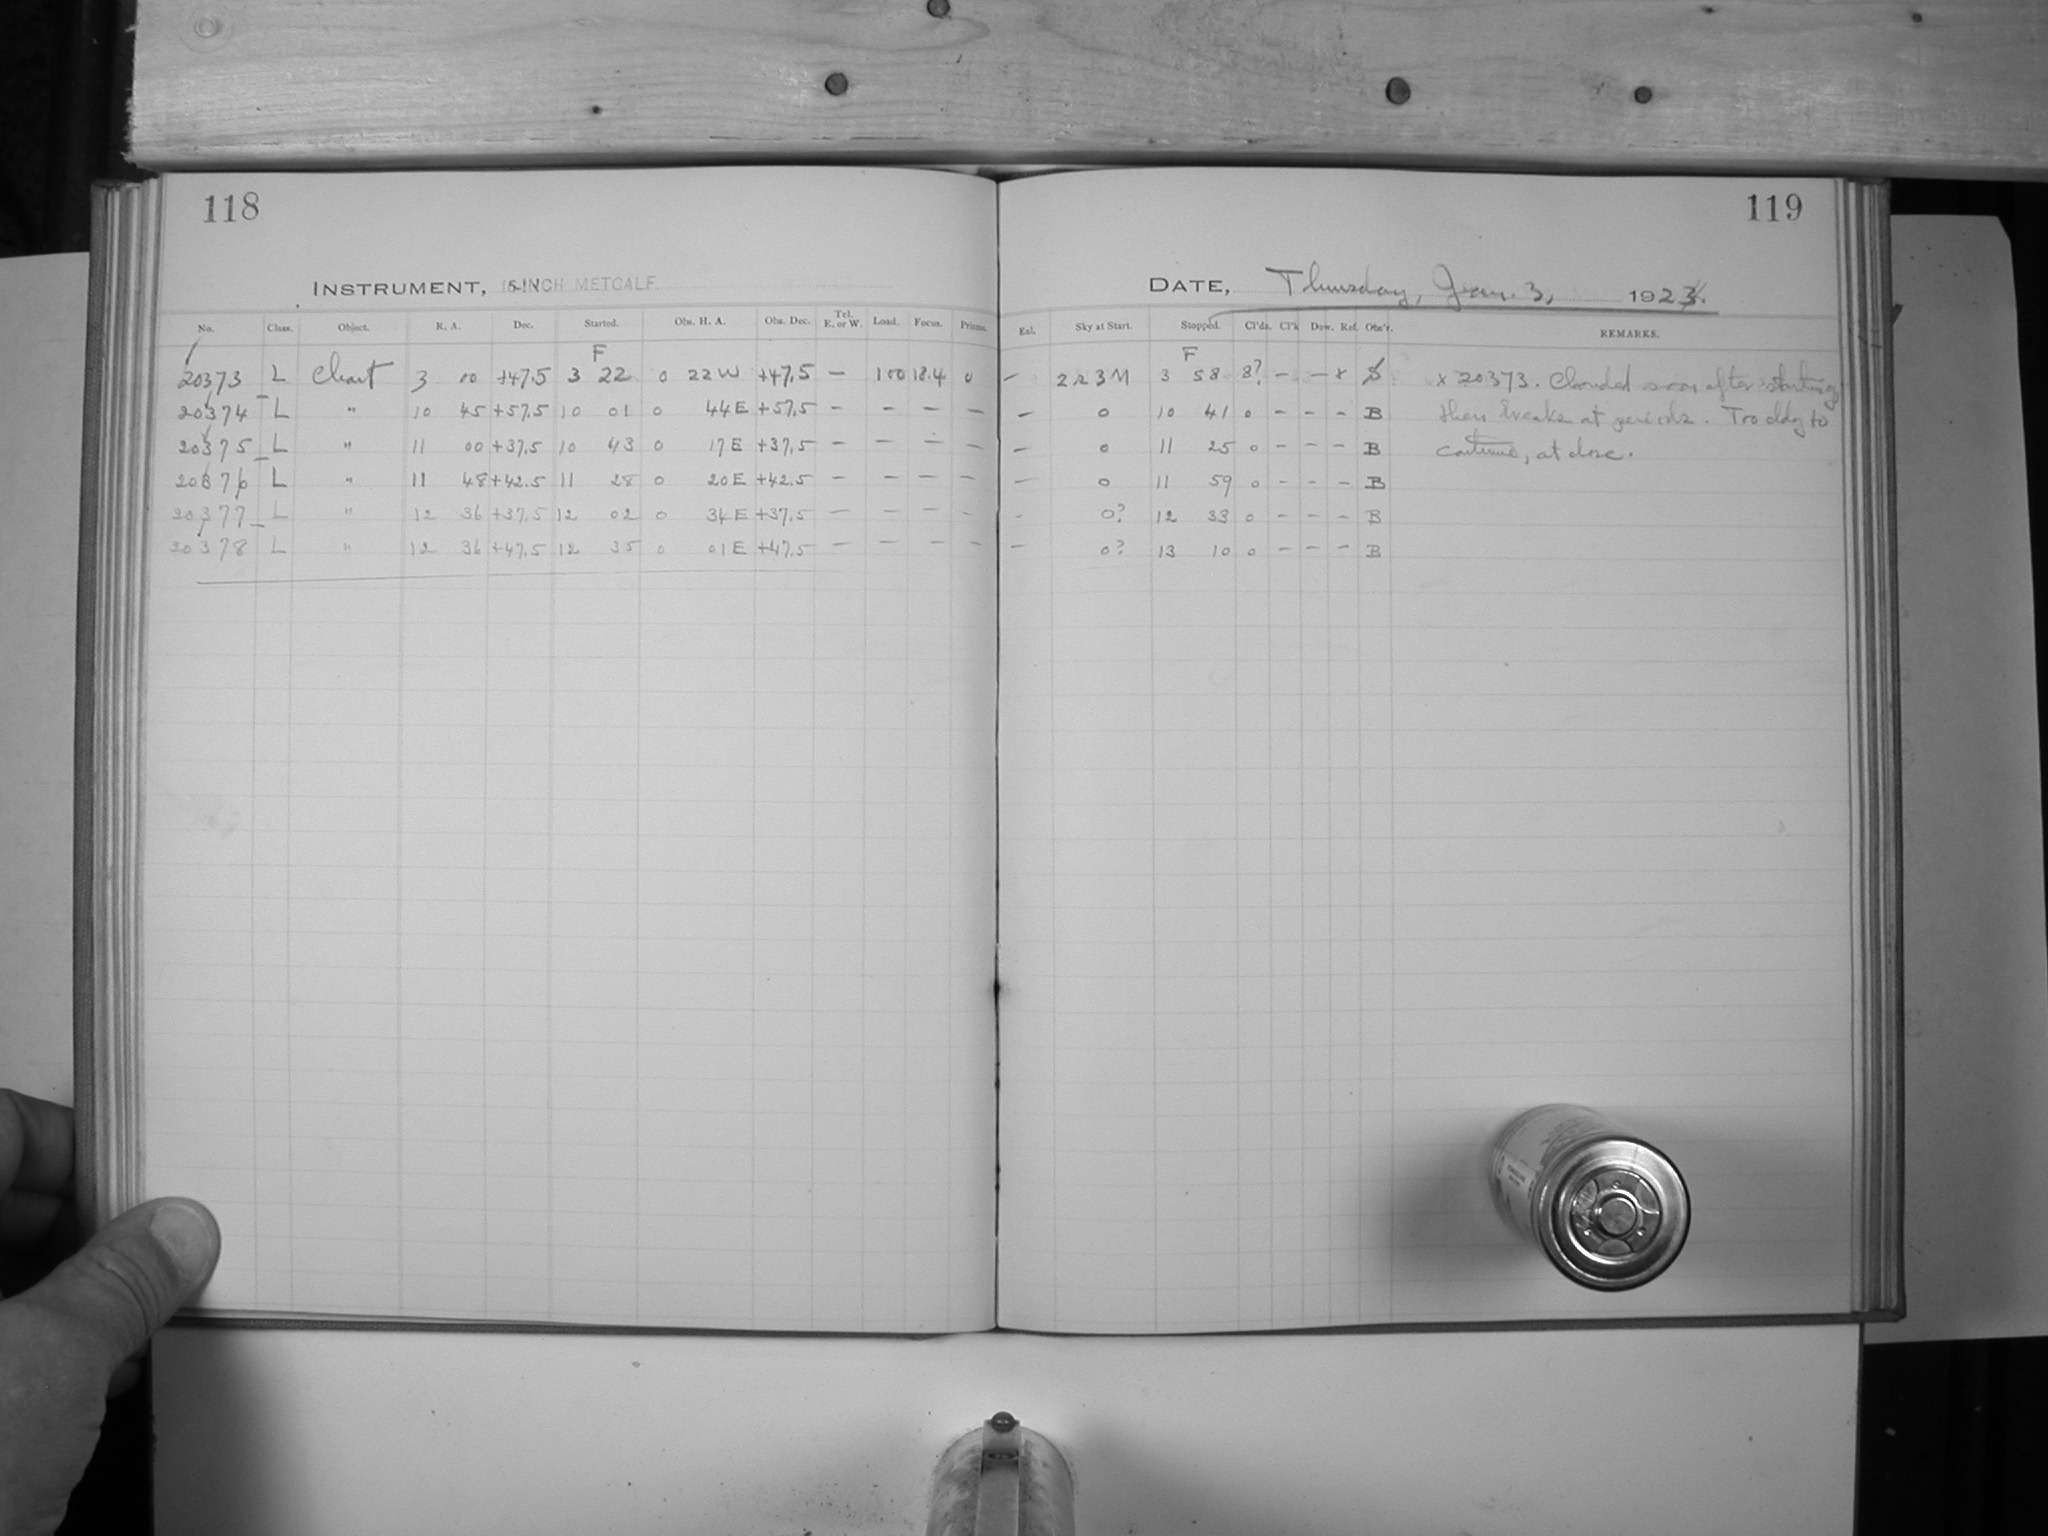 118
INSTRUMENT, 16-INCH METCALF
No. Class. Object. R. A. Dec. Started. Obs. H. A. Obs. Dec. Tel. E. or W. Load. Focus. Prisms.
F
20373 L Chart 3 00 +47.5 3 22 0 22 W +47.5 — 100 18.4 0
20374 L " 10 45 +57.5 10 01 0 44 E +57.5 — — — —
20375 L " 11 00 +37.5 10 43 0 17 E +37.5 — — — —
20376 L " 11 48 +42.5 11 28 0 20 E +42.5 — — — —
20377 L " 12 36 +37.5 12 02 0 34 E +37.5 — — — —
20378 L " 12 36 +47.5 12 35 0 01 E +47.5 — — — —
119
DATE, Thursday, Jan. 3, 192
Eal. Sky at Start. Stopped. Cl'ds. Cl'k Dew. Ref. Obs'r. REMARKS.
F
— 2 2 3 M 3 58 8? — — x S x 20373. Clouded soon after starting
— 0 10 41 0 — — — B then breaks at periods. Too cldy to
— 0 11 25 0 — — — B continue, at close.
— 0 11 59 0 — — — B
— 0? 12 33 0 — — — B
— 0? 13 10 0 — — — B